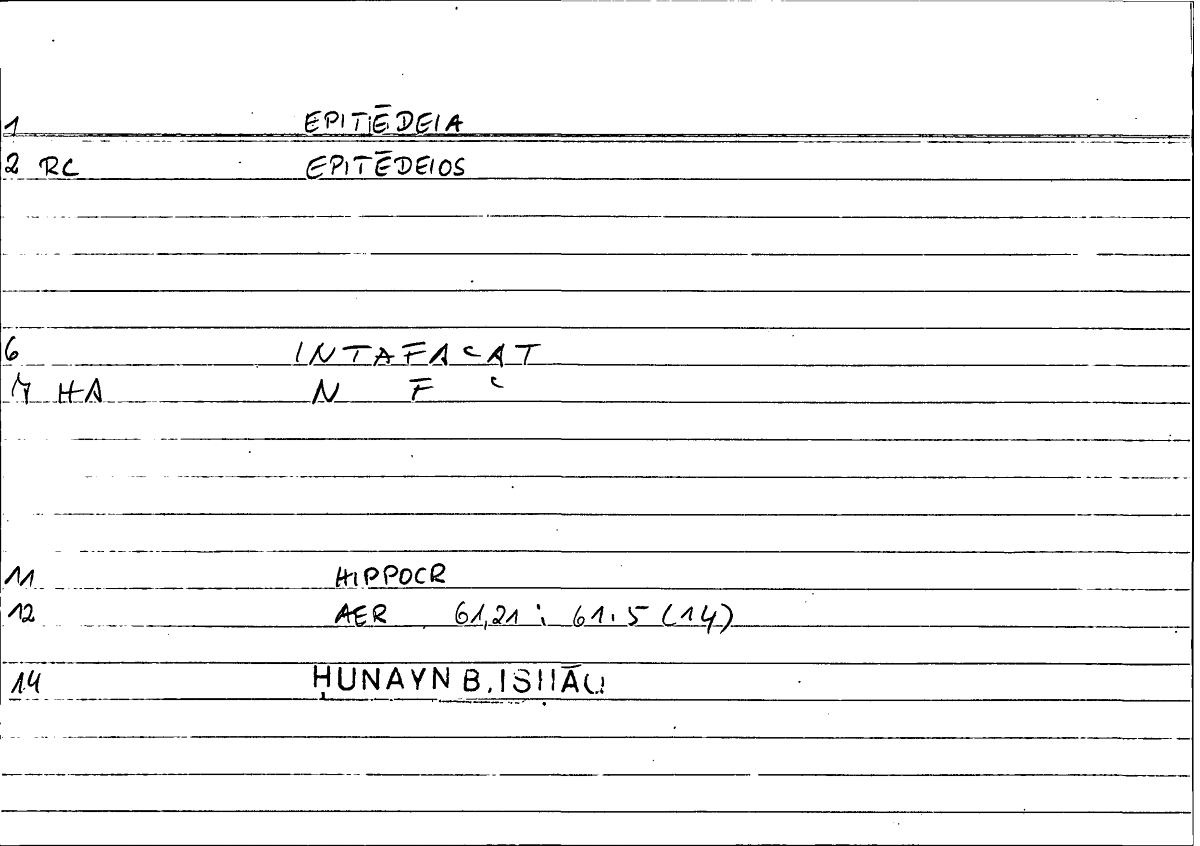 1 EPITĒDEIA
2 RC EPITĒDEIOS
6 INTAFAʿAT
7 HA N F ʿ
11 HIPPOCR
12 AER 61,21 : 61.5 (14)
14 ḤUNAYN B. ISḤĀQ